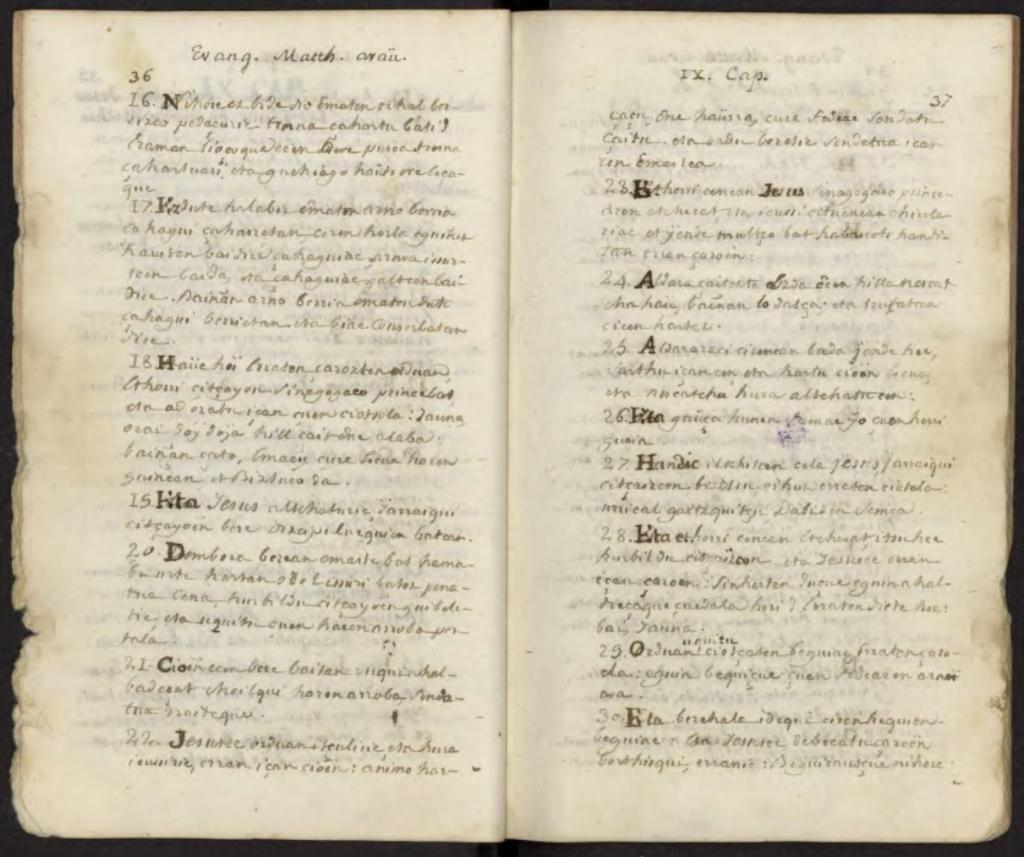 Evang. Matth. araü.
36
16. Nihorc ez bide dio ematen oihal ber-
rizco pedaçuric
çahartuari, eta guehiago
que
17. Ez dute halaber ematen arno berria
çahagui çaharretan, ceren horla eguinez
hausten baitire çahaguiac
baida, eta çahaguiac galtcen bai-
tire. Bainan arno berria ematen dute
çahagui berrietan eta biac conserbatcen
dire.
18. Haüc hoi erraten carozten orduan
Ethorri citçayon Sinagogaco princebat
eta adoratu içan çuen ciotsola: Jauna
orai doi doia hill çait ene alaba:
bainan çato, emaçu çure escua haren
gainean et biztuco da.
19. Eta Jesus altchaturic jarraiqui
citçayoen bere Discipuluequien batean.
20. Dembora berean emazte bat hama-
bi urte hartan odol issuri batez pena-
tua cena, hurbildu citçayoen guibele-
tic, eta uquitu çuen haren arroba
21. Cioin ecen bere baitan: uquitu hal-
badeçat choilqui haren arroba, senda-
tua
22. Jesusec orduan itçuliric eta hura
icusiric, erran içan cioen: animo har-
IX. Cap.
37
çaçu, ene haürra, çure fedeac sendatu
çaitu. eta ordu beretic sendatua içan
cen emaztea.
23. Ethorri cenean Jesus Sinagogaco prince-
aren etcherat eta icussi cituenean chirola-
riac et jende multço bat habarrots handi-
tan erran çaroen:
24. Aldara çaitezte Ezda ecen hilla nescat-
cha haü, bainan lo datça: eta trufatcen
ciren hartaz.
25. Aldararaci cirenean bada jende hec,
sarthu içan cen eta hartu cioen escua,
eta nescatcha hura altchatu cen:
26. Eta gaüça hunen famac jo çuen herri
gucia.
27. Handic ilkhitcen cela Jesus jarraiqui
citçaizcon bi itsu, oihuz erraten ciotela:
urrical gaitzquitçu, Dabiden semea.
28. Eta ethorri cenean etcherat itsu hec
hurbildu citçaizcon eta Jesusec erran
içan çaroen: Sinhesten duçue eguin ahal-
deçaque çuedala hori? Erraten diote hec:
bai, Jauna.
29. Orduan uquitu ciotçaten beguiac erraten çaro-
ela: eguin bequiçue çuen fedearen arau-
ara.
30. Eta berehala idequi ciren hequien-
beguiac: eta Jesusec debecatu çaroen
borthizqui, erranic: Beguirautçue nihorc